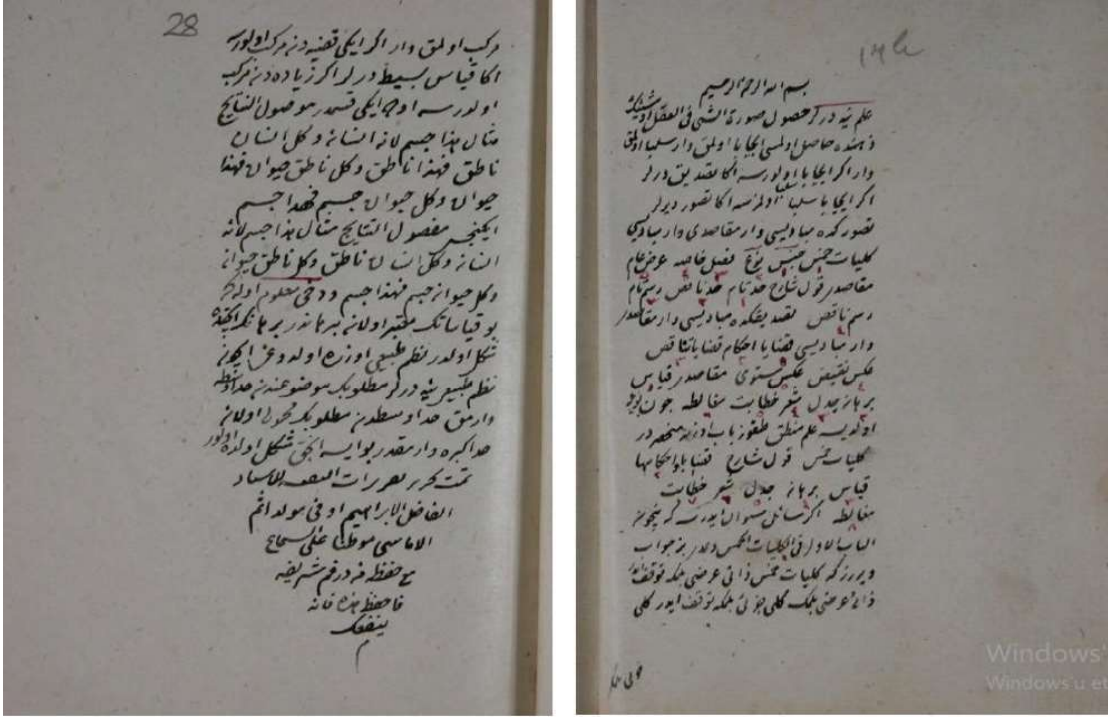 28
مركب اولمق وار اگر ايكى قضيه دن مركب اولورسه
اكا قياس بسيط ديرلر اگر زياده دن مركب
اولورسه اوده ايكى قسمدر موصول النتايج
مثال هذا جسم لانه انسان وكل انسان
ناطق فهذا ناطق وكل ناطق حيوان فهذا
حيوان وكل حيوان جسم فهذا جسم
ايكنجى مفصول النتايج مثال هذا جسم لانه
انسان وكل انسان ناطق وكل ناطق حيوان
وكل حيوان جسم فهذا جسم ودخى معلوم اوله كه
بو قياساتك معتبر اولانى برهاندر برهانك
شكل اولدر نظم طبيعى اوزره اولدوغى ايچون
نظم طبيعى نيه ديرلر مطلوبك موضوعندن حد اوسطه
وارمق حد اوسطدن مطلوبك محمولى اولان
حد اكبره وارمقدر بو ايسه انجق شكل اولده اولور
تمت تحرير تقريرات
الفاضل الابراهيم اوفى مولدا ثم
الاماسى موطنا على
حفظه
فاحفظ هذه فانه
ينفعك
بسم الله الرحمن الرحيم
علم نيه ديرلر حصول صورة الشئ فى العقل
ذهنده حاصل اولمسى ايجابا اولمق وار سلبا اولمق
وار اگر ايجابا اولورسه اكا تصديق ديرلر
سلبا
اگر ايجابا سلبا اولمزسه اكا تصور ديرلر
تصورگده مباديسى وار مقاصدى وار مباديسى
كليات خمس جنس نوع فصل خاصه عرض عام
مقاصدر قول شارح حد تام حد ناقص رسم تام
رسم ناقص تصديقكده مباديسى وار مقاصدر
وار مباديسى قضايا احكام قضايا تناقض
عكس نقيض عكس مستوى مقاصدر قياس
برهان جدل شعر خطابت مغالطه چون بويله
اولديسه علم منطق طقوز باب اوزره منحصر در
كليات خمس قول شارح قضايا واحكامها
قياس برهان جدل شعر خطابت
مغالطه اگر سائل سوال ايدرسه كه نيچون
الباب الاول فى الكليات الخمس ديدى بز جواب
ويررز كه كليات خمس ذاتى عرضى بلمكه توقف ايدر
ذاتى عرضى بلمك كلى جزئى بلمكه توقف ايدر كلى
Windows'
Windows'u et